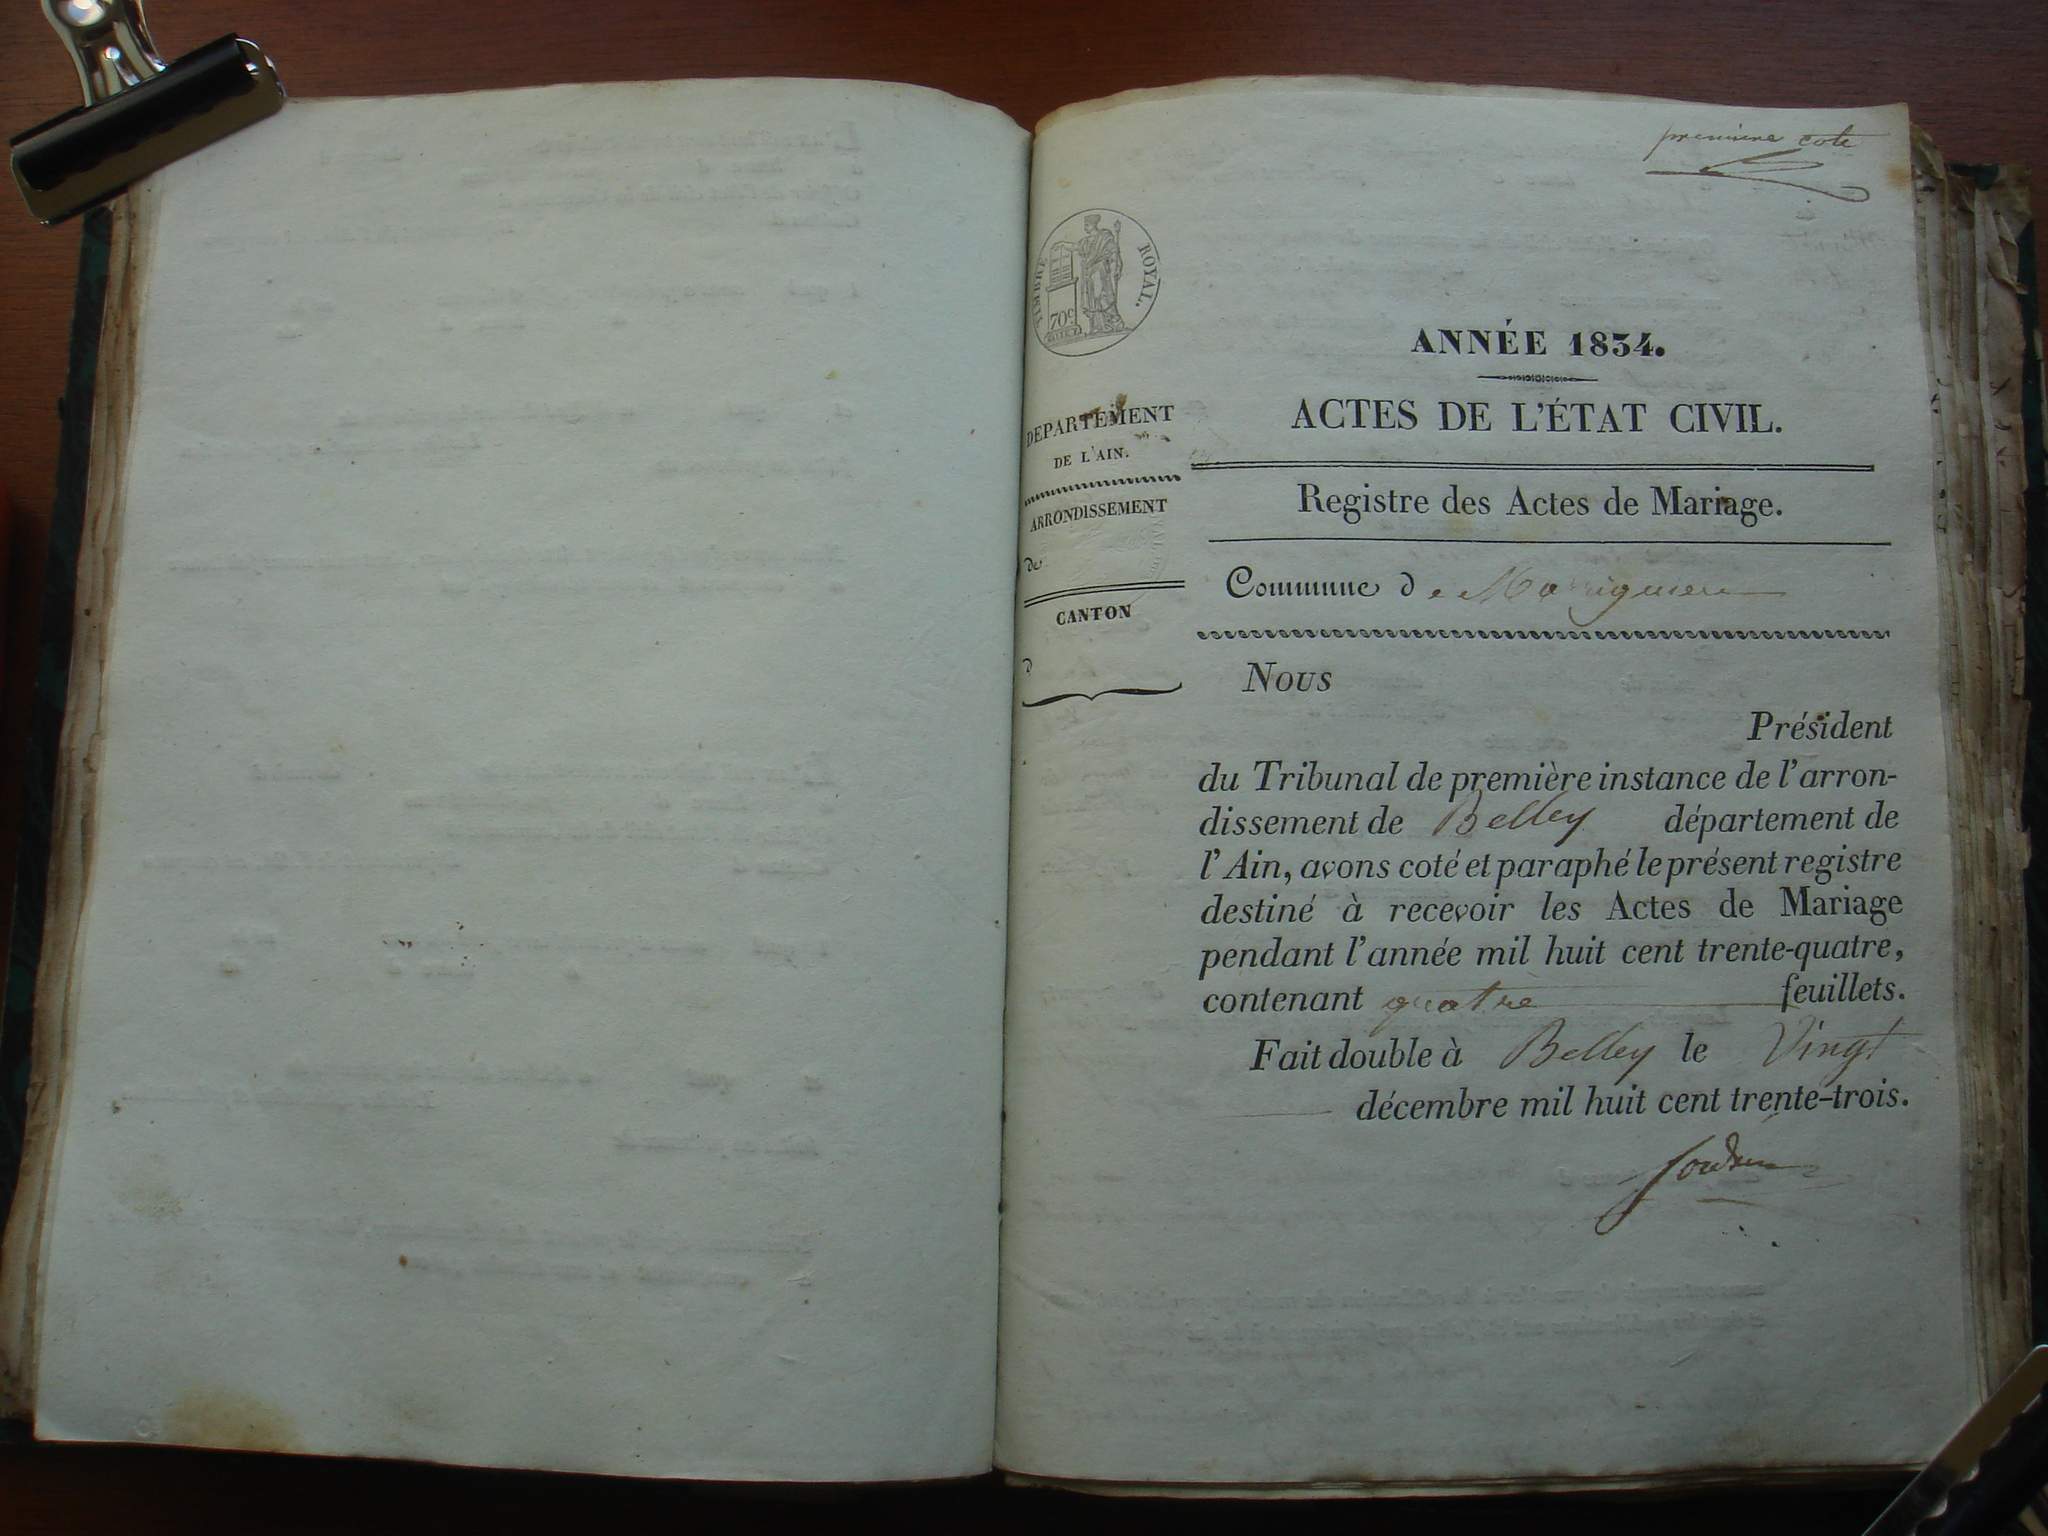 première cote
TIMBRE ROYAL.
70c
ANNÉE 1834.
ACTES DE L'ÉTAT CIVIL.
DEPARTEMENT
DE L'AIN.
ARRONDISSEMENT
de
CANTON
d
Registre des Actes de Mariage.
Commune de
Nous
Président
du Tribunal de première instance de l'arron-
dissement de Belley département de
l'Ain, avons coté et paraphé le présent registre
destiné à recevoir les Actes de Mariage
pendant l'année mil huit cent trente-quatre,
contenant quatre feuillets.
Fait double à Belley le Vingt
décembre mil huit cent trente-trois.